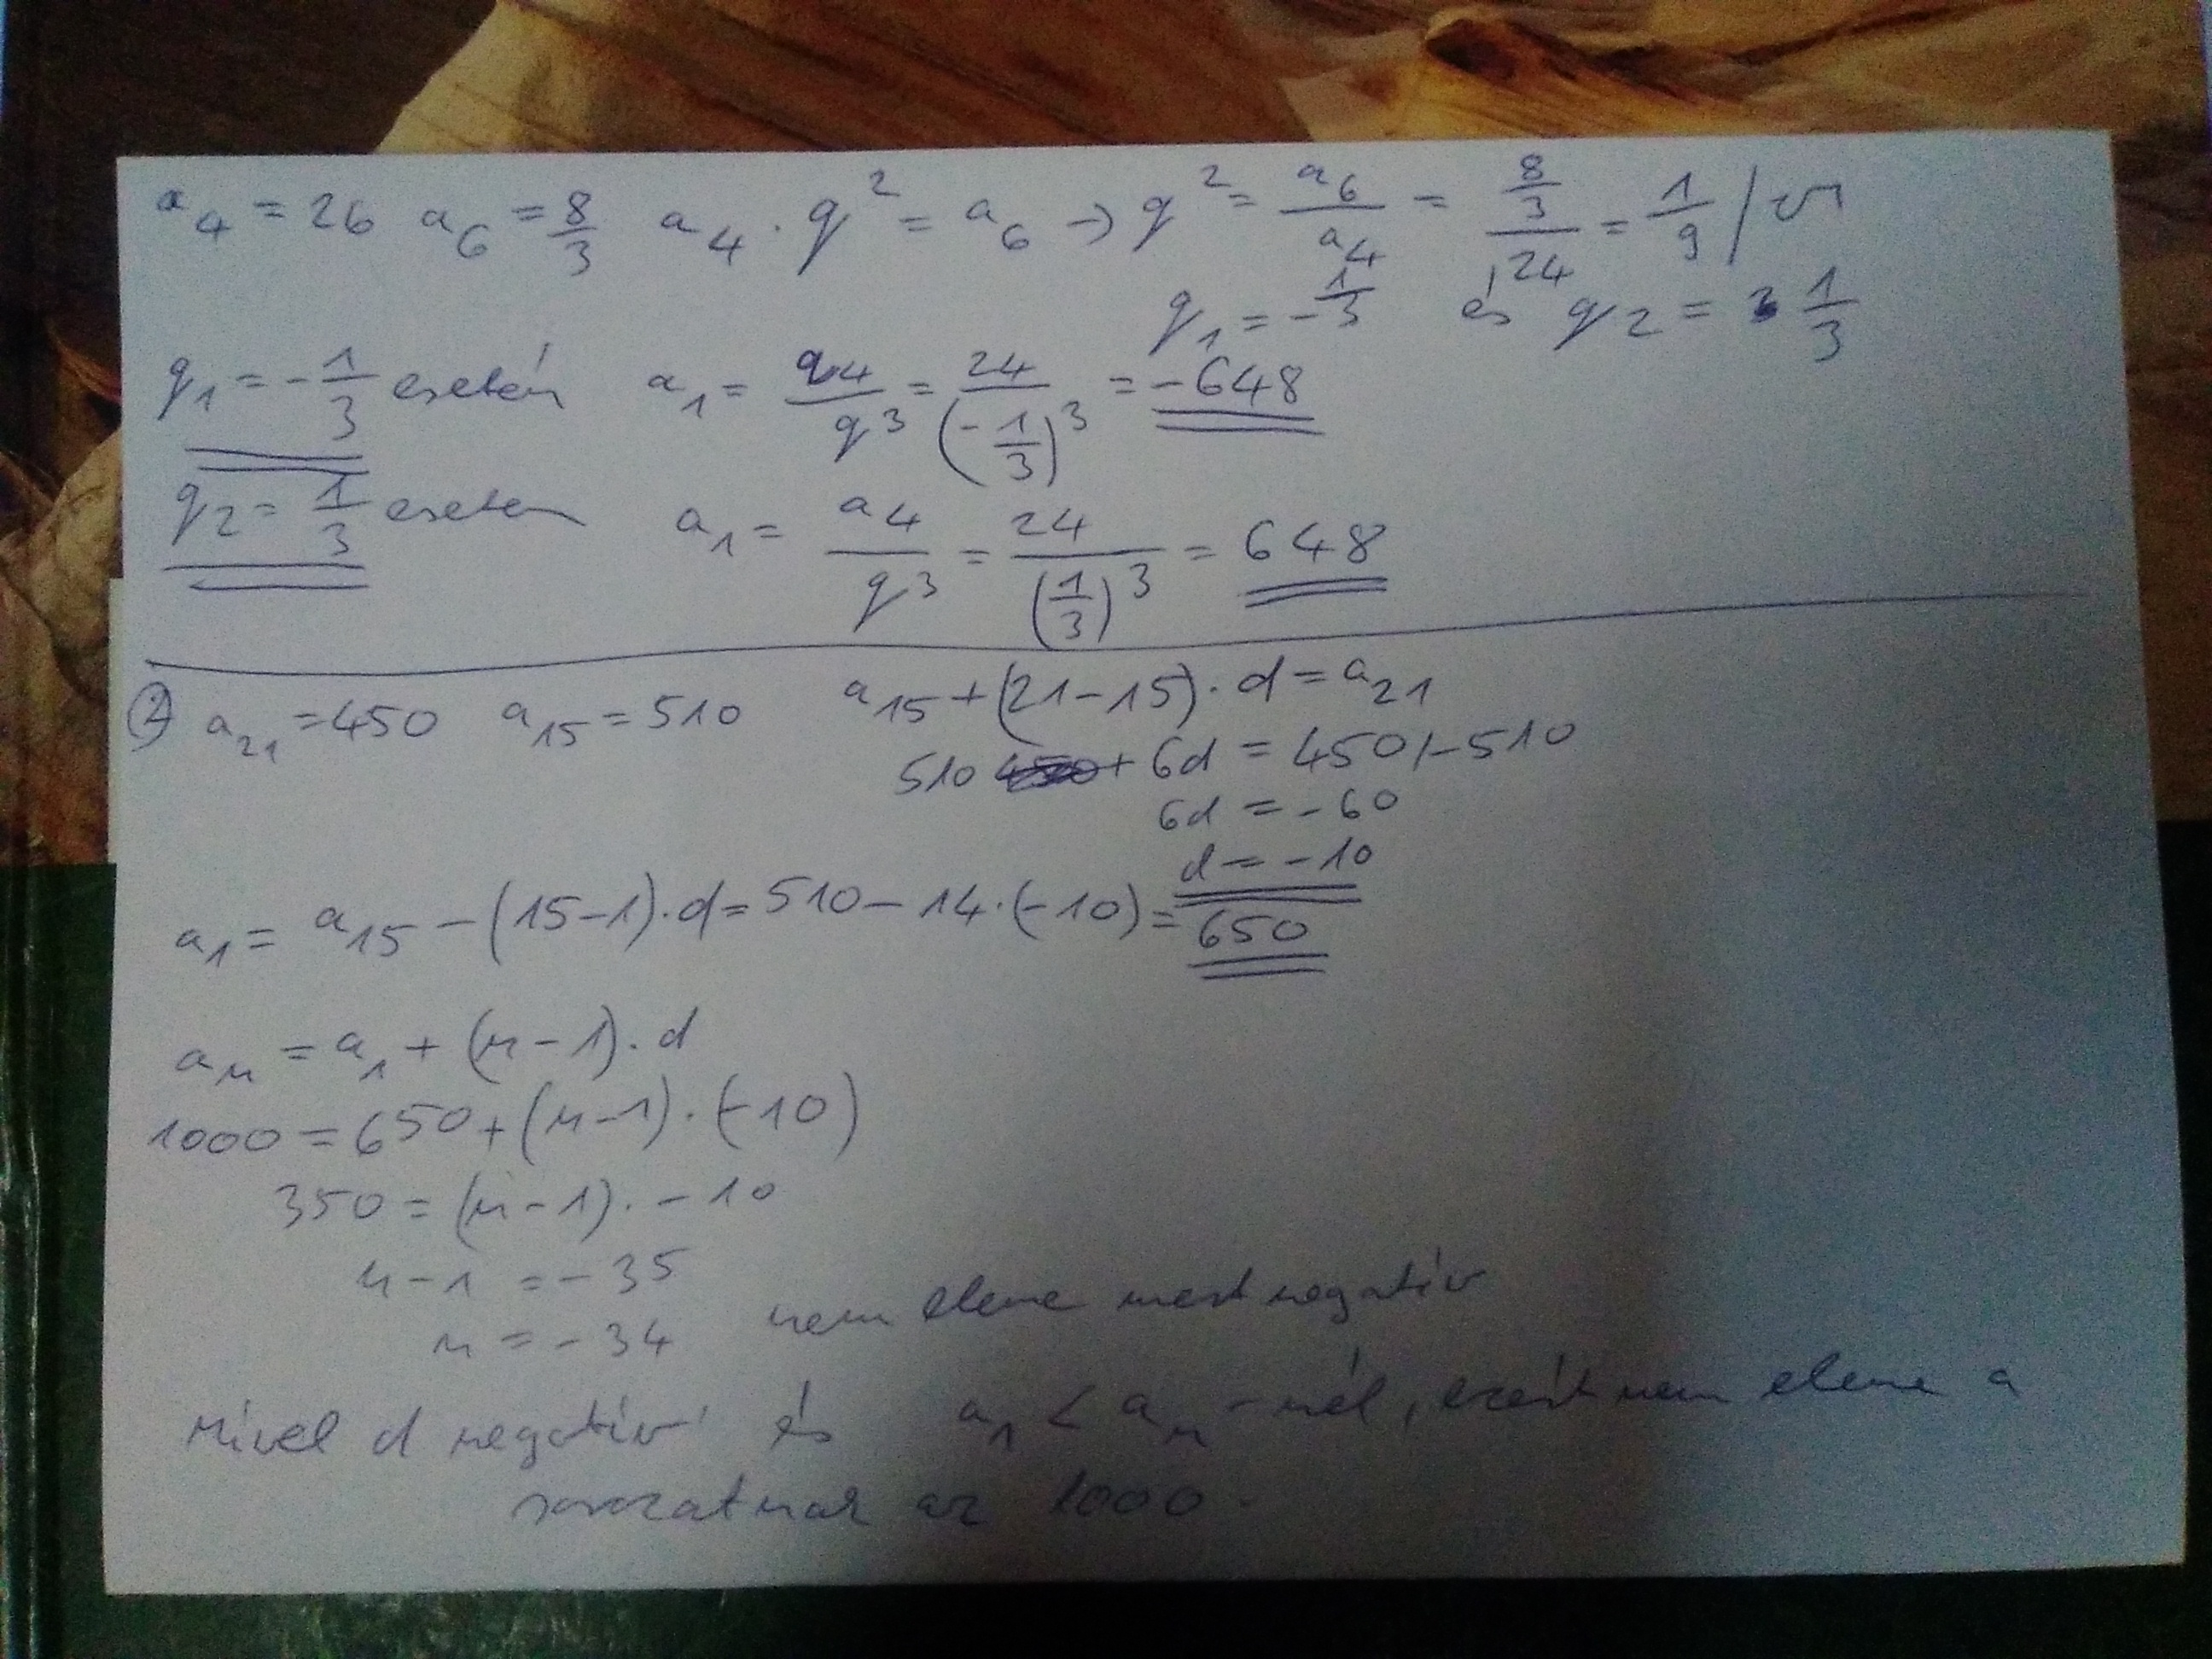 a₄ = 26 a₆ = 8/3 a₄ · q² = a₆ → q² = a₆/a₄ = (8/3)/24 = 1/9 /√
q₁ = -1/3 és q₂ = 1/3
q₁ = -1/3 esetén a₁ = a₄/q³ = 24/(-1/3)³ = -648
q₂ = 1/3 eseten a₁ = a₄/q³ = 24/(1/3)³ = 648
② a₂₁ = 450 a₁₅ = 510 a₁₅ + (21-15) · d = a₂₁
510 + 6d = 450 /-510
6d = -60
d = -10
a₁ = a₁₅ - (15-1) · d = 510 - 14 · (-10) = 650
aₙ = a₁ + (n-1) · d
1000 = 650 + (n-1) · (-10)
350 = (n-1) · -10
n-1 = -35
n = -34 nem eleme mert negatív
Mivel d negatív és a₁ < aₙ-nél, ezért nem eleme a
sorozatnak az 1000.